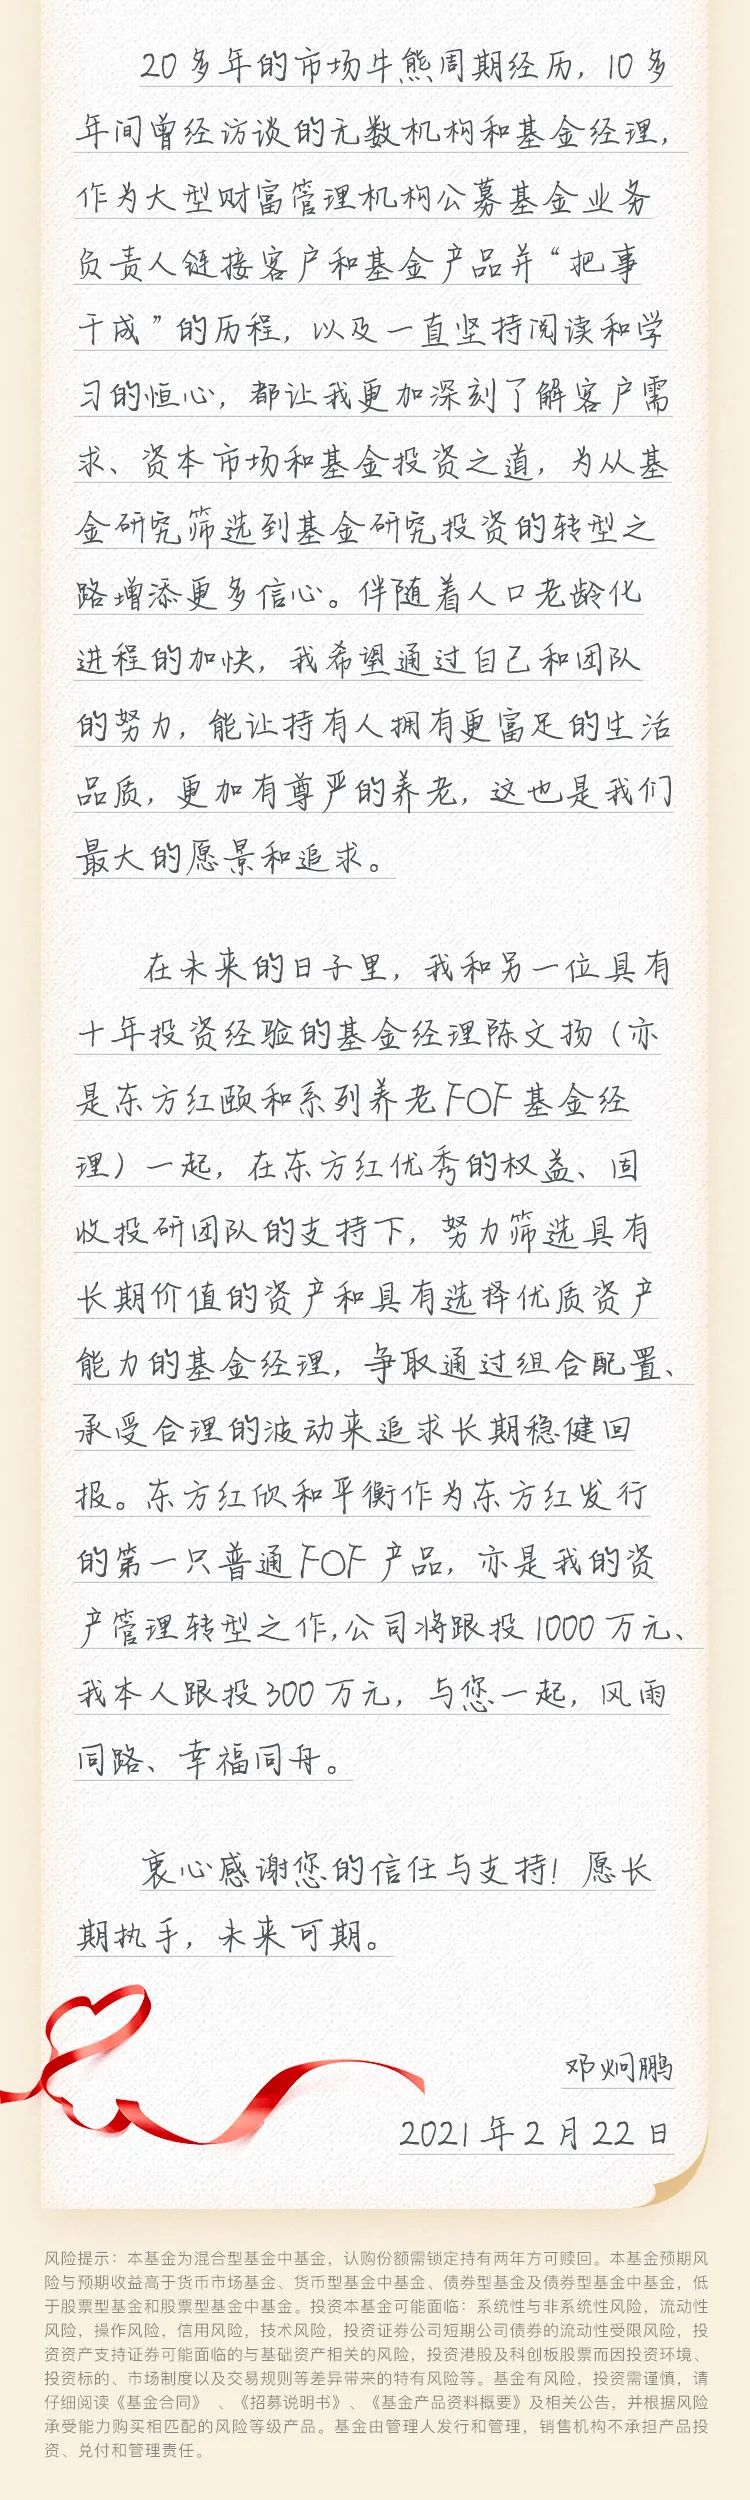 20多年的市场牛熊周期经历，10多
年间曾经访谈的无数机构和基金经理，
作为大型财富管理机构公募基金业务
负责人链接客户和基金产品并“把事
干成”的历程，以及一直坚持阅读和学
习的恒心，都让我更加深刻了解客户需
求、资本市场和基金投资之道，为从基
金研究筛选到基金研究投资的转型之
路增添更多信心。伴随着人口老龄化
进程的加快，我希望通过自己和团队
的努力，能让持有人拥有更富足的生活
品质，更加有尊严的养老，这也是我们
最大的愿景和追求。
在未来的日子里，我和另一位具有
十年投资经验的基金经理陈文扬（亦
是东方红颐和系列养老FOF基金经
理）一起，在东方红优秀的权益、固
收投研团队的支持下，努力筛选具有
长期价值的资产和具有选择优质资产
能力的基金经理，争取通过组合配置、
承受合理的波动来追求长期稳健回
报。东方红欣和平衡作为东方红发行
的第一只普通FOF产品，亦是我的资
产管理转型之作，公司将跟投1000万元、
我本人跟投300万元，与您一起，风雨
同路、幸福同舟。
衷心感谢您的信任与支持！愿长
期执手，未来可期。
邓炯鹏
2021年2月22日
风险提示：本基金为混合型基金中基金，认购份额需锁定持有两年方可赎回。本基金预期风
险与预期收益高于货币市场基金、货币型基金中基金、债券型基金及债券型基金中基金，低
于股票型基金和股票型基金中基金。投资本基金可能面临：系统性与非系统性风险，流动性
风险，操作风险，信用风险，技术风险，投资证券公司短期公司债券的流动性受限风险，投
资资产支持证券可能面临的与基础资产相关的风险，投资港股及科创板股票而因投资环境、
投资标的、市场制度以及交易规则等差异带来的特有风险等。基金有风险，投资需谨慎，请
仔细阅读《基金合同》、《招募说明书》、《基金产品资料概要》及相关公告，并根据风险
承受能力购买相匹配的风险等级产品。基金由管理人发行和管理，销售机构不承担产品投
资、兑付和管理责任。